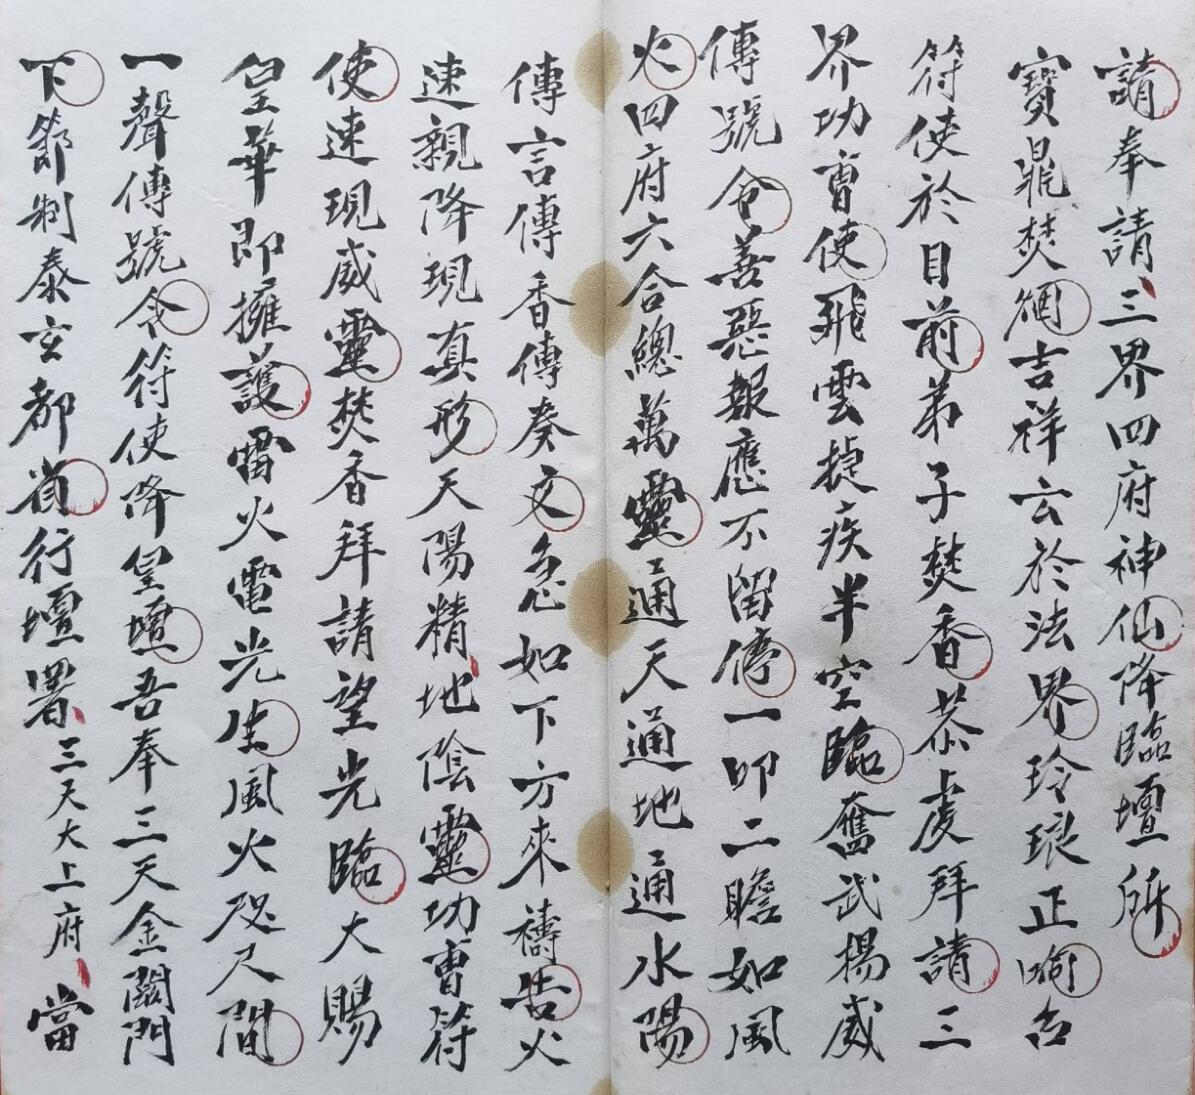 請奉請三界四府神仙降臨壇所
寶鼎焚 吉祥云於法界玲琅正 古
符使於目前弟子焚香恭虔拜請三
界功曹使飛雲捷疾半空臨奮武揚威
傳號令善惡報應不留停一叩二瞻如風
火四府六合總萬靈通天通地通水陽
傳言傳香傳奏文急如下方來禱告火
速親降現真形天陽精地陰靈功曹符
使速現威靈焚香拜請望光臨大賜
皇華即擁護雷火電光生風火咫尺間
一聲傳號令符使降皇壇吾奉三天金闕門
下 制泰玄都省行壇署三天大上府當